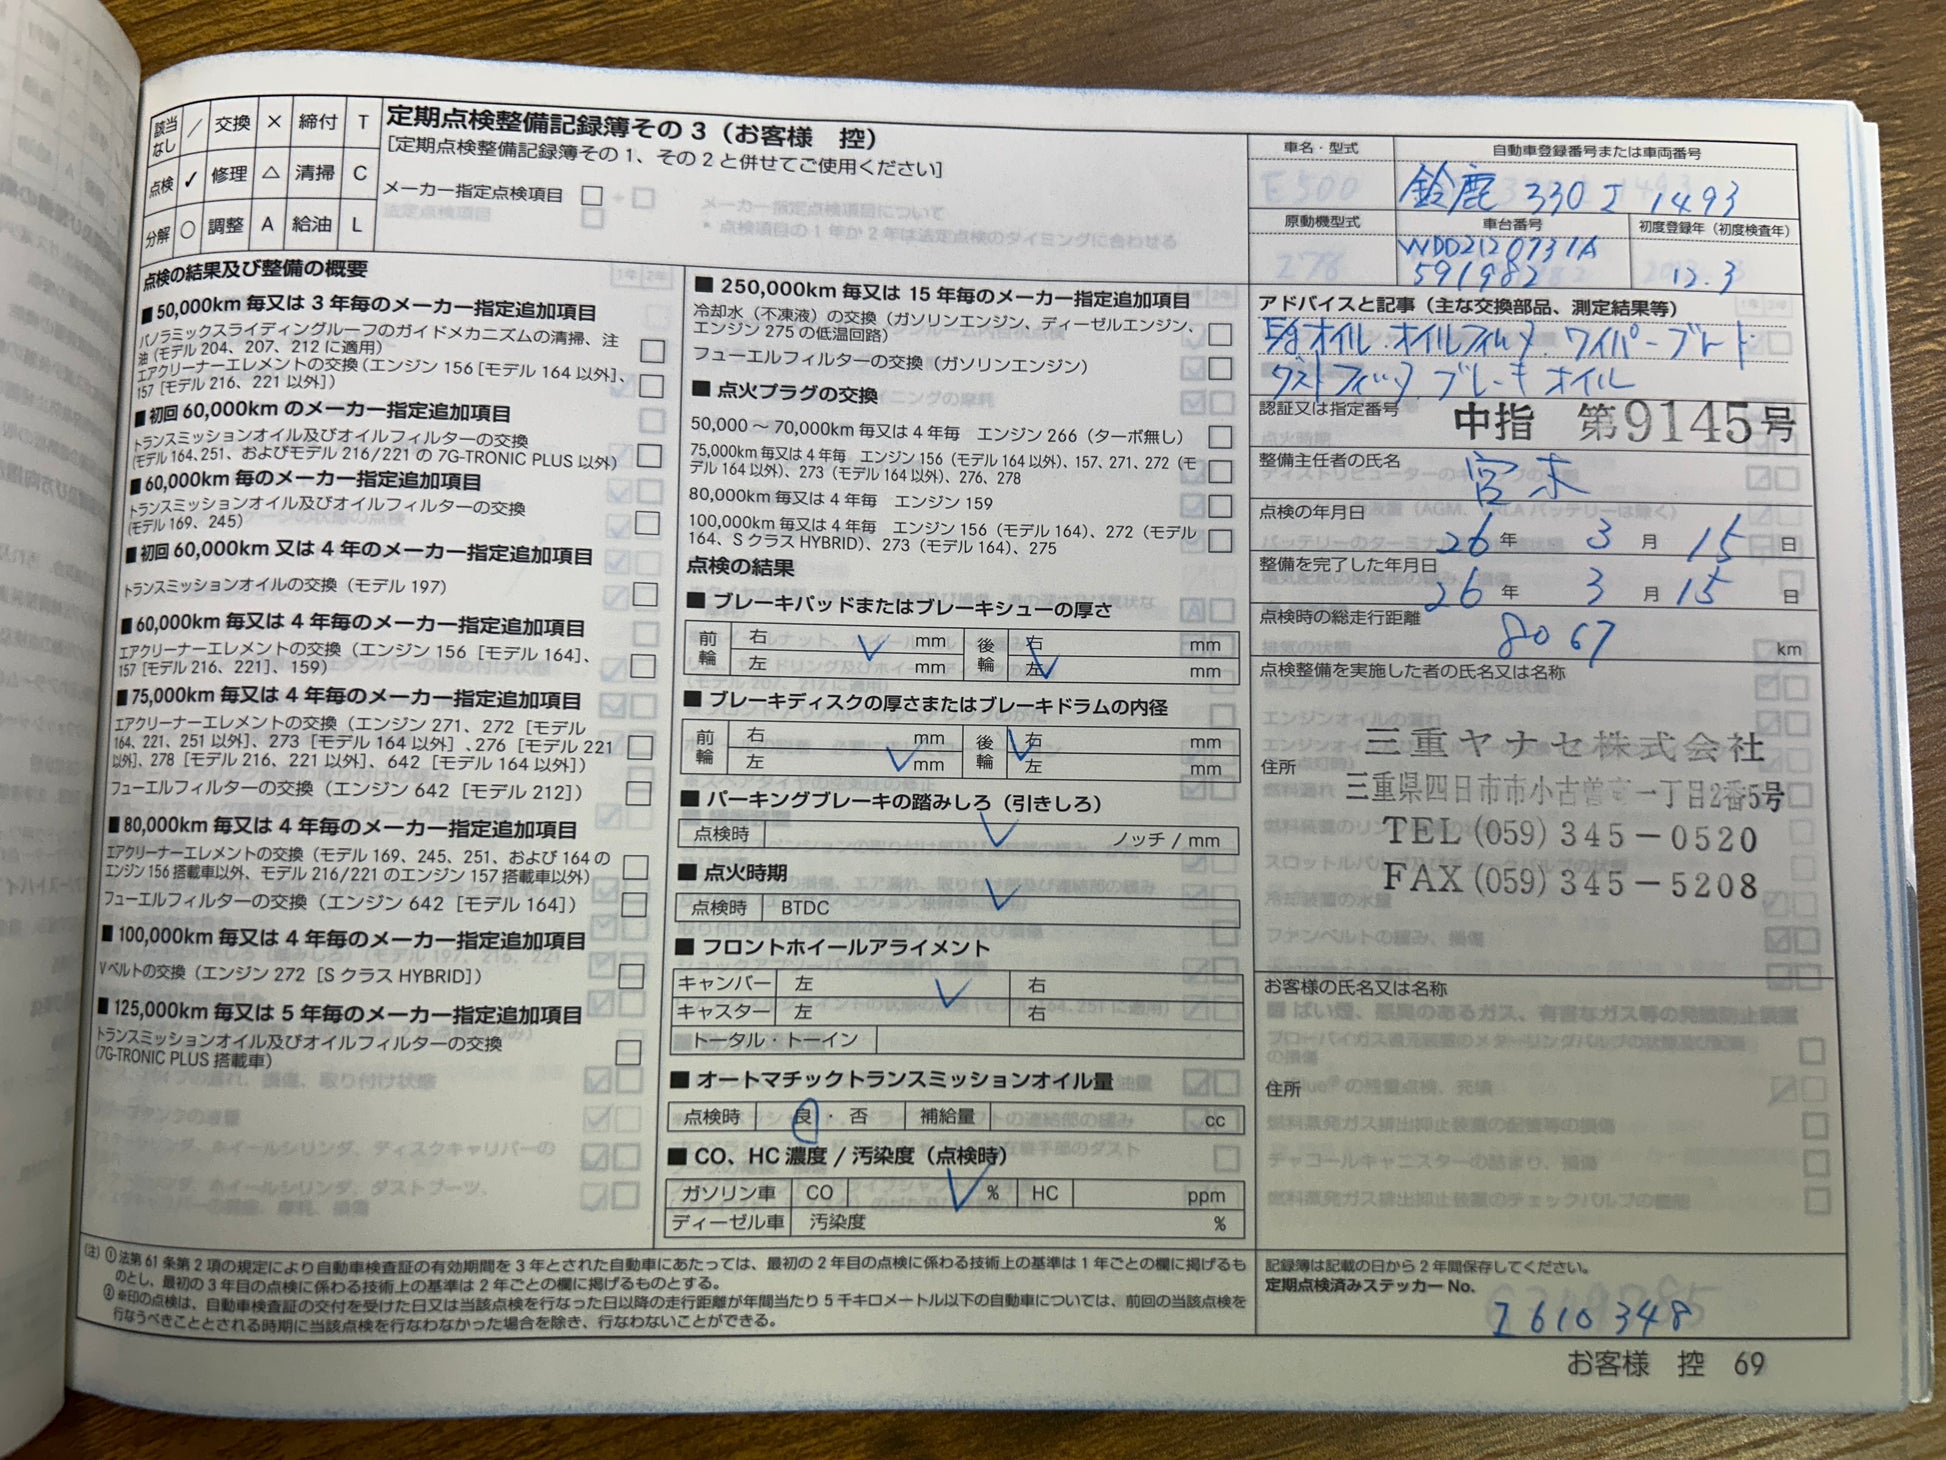 該当なし ／ 交換 × 締付 T
点検 ✓ 修理 △ 清掃 C
分解 ○ 調整 A 給油 L
定期点検整備記録簿その3（お客様 控）
[定期点検整備記録簿その1、その2と併せてご使用ください]
メーカー指定点検項目 □
点検の結果及び整備の概要
■50,000km 毎又は3年毎のメーカー指定追加項目
パノラミックスライディングルーフのガイドメカニズムの清掃、注
油（モデル 204、207、212 に適用） □
エアクリーナーエレメントの交換（エンジン 156［モデル 164 以外］、
157［モデル 216、221 以外］） □
■初回 60,000km のメーカー指定追加項目
トランスミッションオイル及びオイルフィルターの交換
（モデル 164、251、およびモデル 216/221 の 7G-TRONIC PLUS 以外） □
■60,000km 毎のメーカー指定追加項目
トランスミッションオイル及びオイルフィルターの交換
（モデル 169、245） □
■初回 60,000km 又は4年のメーカー指定追加項目
トランスミッションオイルの交換（モデル 197） □
■60,000km 毎又は4年毎のメーカー指定追加項目
エアクリーナーエレメントの交換（エンジン 156［モデル 164］、
157［モデル 216、221］、159） □
■75,000km 毎又は4年毎のメーカー指定追加項目
エアクリーナーエレメントの交換（エンジン 271、272［モデル
164、221、251 以外］、273［モデル 164 以外］、276［モデル 221
以外］、278［モデル 216、221 以外］、642［モデル 164 以外］） □
フューエルフィルターの交換（エンジン 642［モデル 212］） □
■80,000km 毎又は4年毎のメーカー指定追加項目
エアクリーナーエレメントの交換（モデル 169、245、251、および 164 の
エンジン 156 搭載車以外、モデル 216/221 のエンジン 157 搭載車以外） □
フューエルフィルターの交換（エンジン 642［モデル 164］） □
■100,000km 毎又は4年毎のメーカー指定追加項目
Vベルトの交換（エンジン 272［S クラス HYBRID］） □
■125,000km 毎又は5年毎のメーカー指定追加項目
トランスミッションオイル及びオイルフィルターの交換
（7G-TRONIC PLUS 搭載車） □
■250,000km 毎又は15年毎のメーカー指定追加項目
冷却水（不凍液）の交換（ガソリンエンジン、ディーゼルエンジン、
エンジン 275 の低温回路） □
フューエルフィルターの交換（ガソリンエンジン） □
■点火プラグの交換
50,000 ～ 70,000km 毎又は4年毎 エンジン 266（ターボ無し） □
75,000km 毎又は4年毎 エンジン 156（モデル 164 以外）、157、271、272（モ
デル 164 以外）、273（モデル 164 以外）、276、278 □
80,000km 毎又は4年毎 エンジン 159 □
100,000km 毎又は4年毎 エンジン 156（モデル 164）、272（モデル
164、S クラス HYBRID）、273（モデル 164）、275 □
点検の結果
■ブレーキパッドまたはブレーキシューの厚さ
前輪 右 mm 後輪 右 mm
左 mm 左 mm
■ブレーキディスクの厚さまたはブレーキドラムの内径
前輪 右 mm 後輪 右 mm
左 mm 左 mm
■パーキングブレーキの踏みしろ（引きしろ）
点検時 ✓ ノッチ / mm
■点火時期
点検時 BTDC ✓
■フロントホイールアライメント
キャンバー 左 右
キャスター 左 右
トータル・トーイン
■オートマチックトランスミッションオイル量
点検時 良・否 補給量 cc
■CO、HC 濃度 / 汚染度（点検時）
ガソリン車 CO ✓ % HC ppm
ディーゼル車 汚染度 %
車名・型式 自動車登録番号または車両番号
E500 鈴鹿 330 1493
原動機型式 車台番号 初度登録年（初度検査年）
278 WDD2120731A
591982 12.3
アドバイスと記事（主な交換部品、測定結果等）
オイル.オイルフィルタ.ワイパーブレード
ダストフィルタ.ブレーキオイル
認証又は指定番号 中指 第9145号
整備主任者の氏名
点検の年月日 26年 3月 15日
整備を完了した年月日 26年 3月 15日
点検時の総走行距離 8067 km
点検整備を実施した者の氏名又は名称
三重ヤナセ株式会社
住所 三重県四日市市小古曽一丁目2番5号
TEL (059) 345－0520
FAX (059) 345－5208
お客様の氏名又は名称
住所
記録簿は記載の日から2年間保存してください。
定期点検済みステッカーNo.
2610348
（注）①法第 61 条第 2 項の規定により自動車検査証の有効期間を 3 年とされた自動車にあたっては、最初の 2 年目の点検に係わる技術上の基準は 1 年ごとの欄に掲げるも
のとし、最初の 3 年目の点検に係わる技術上の基準は 2 年ごとの欄に掲げるものとする。
②※印の点検は、自動車検査証の交付を受けた日又は当該点検を行なった日以降の走行距離が年間当たり 5 千キロメートル以下の自動車については、前回の当該点検を
行なうべきこととされる時期に当該点検を行なわなかった場合を除き、行なわないことができる。
お客様 控 69